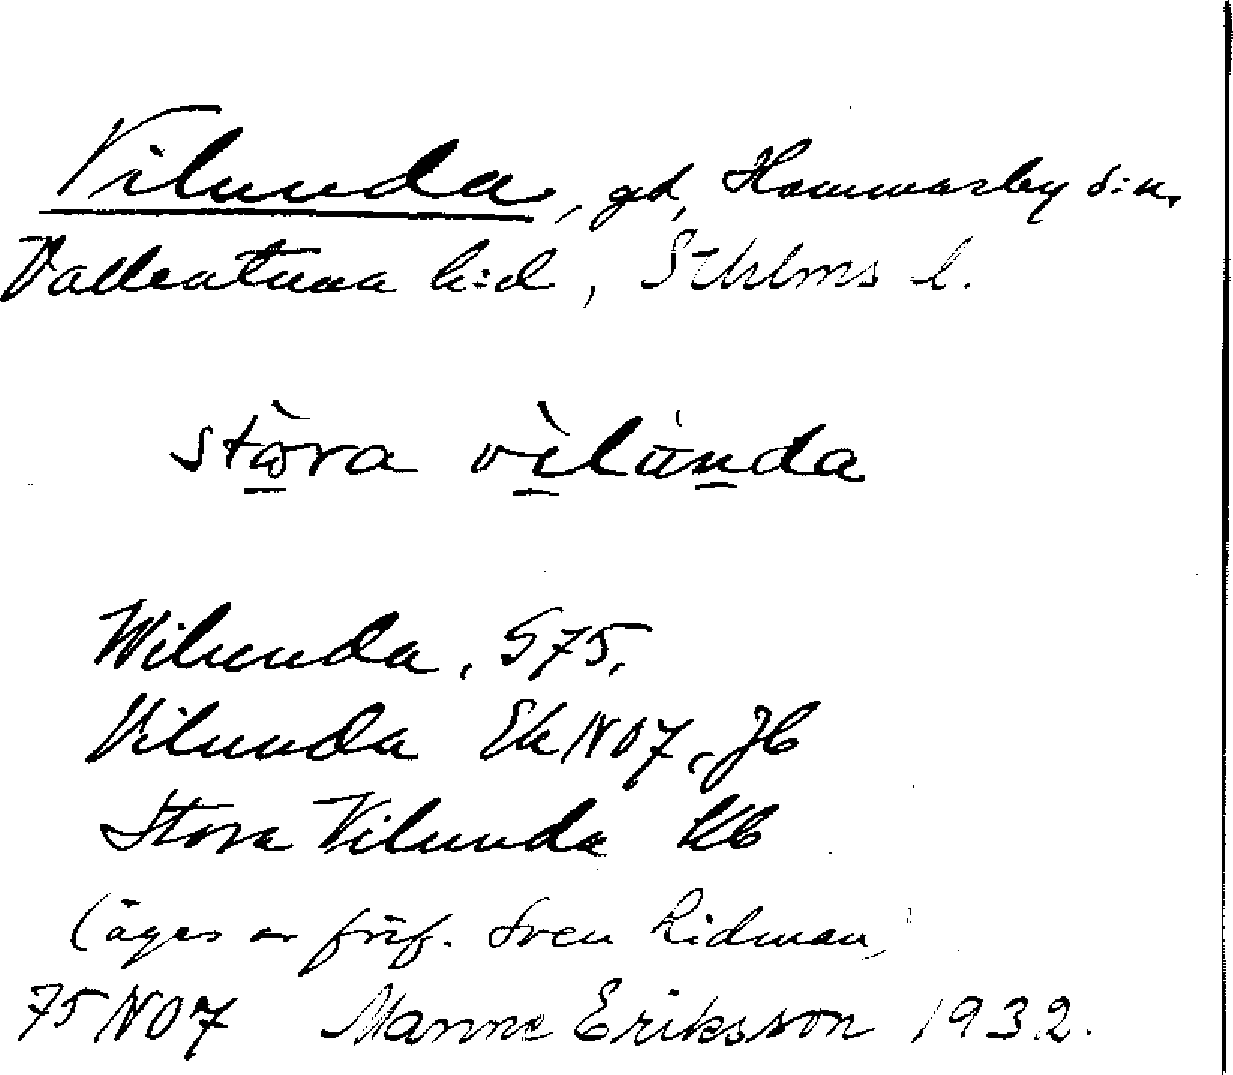 Vilunda, gd, Hammarby s:n,
Vallentuna h:d, Sthlms l.
stòra vìlúnda
Wilunda, S75.
Vilunda Ek N07, Jb
Stora Vilunda kb
(äges av frih. Sven Ridman)
75 N07 Manne Eriksson 1932.